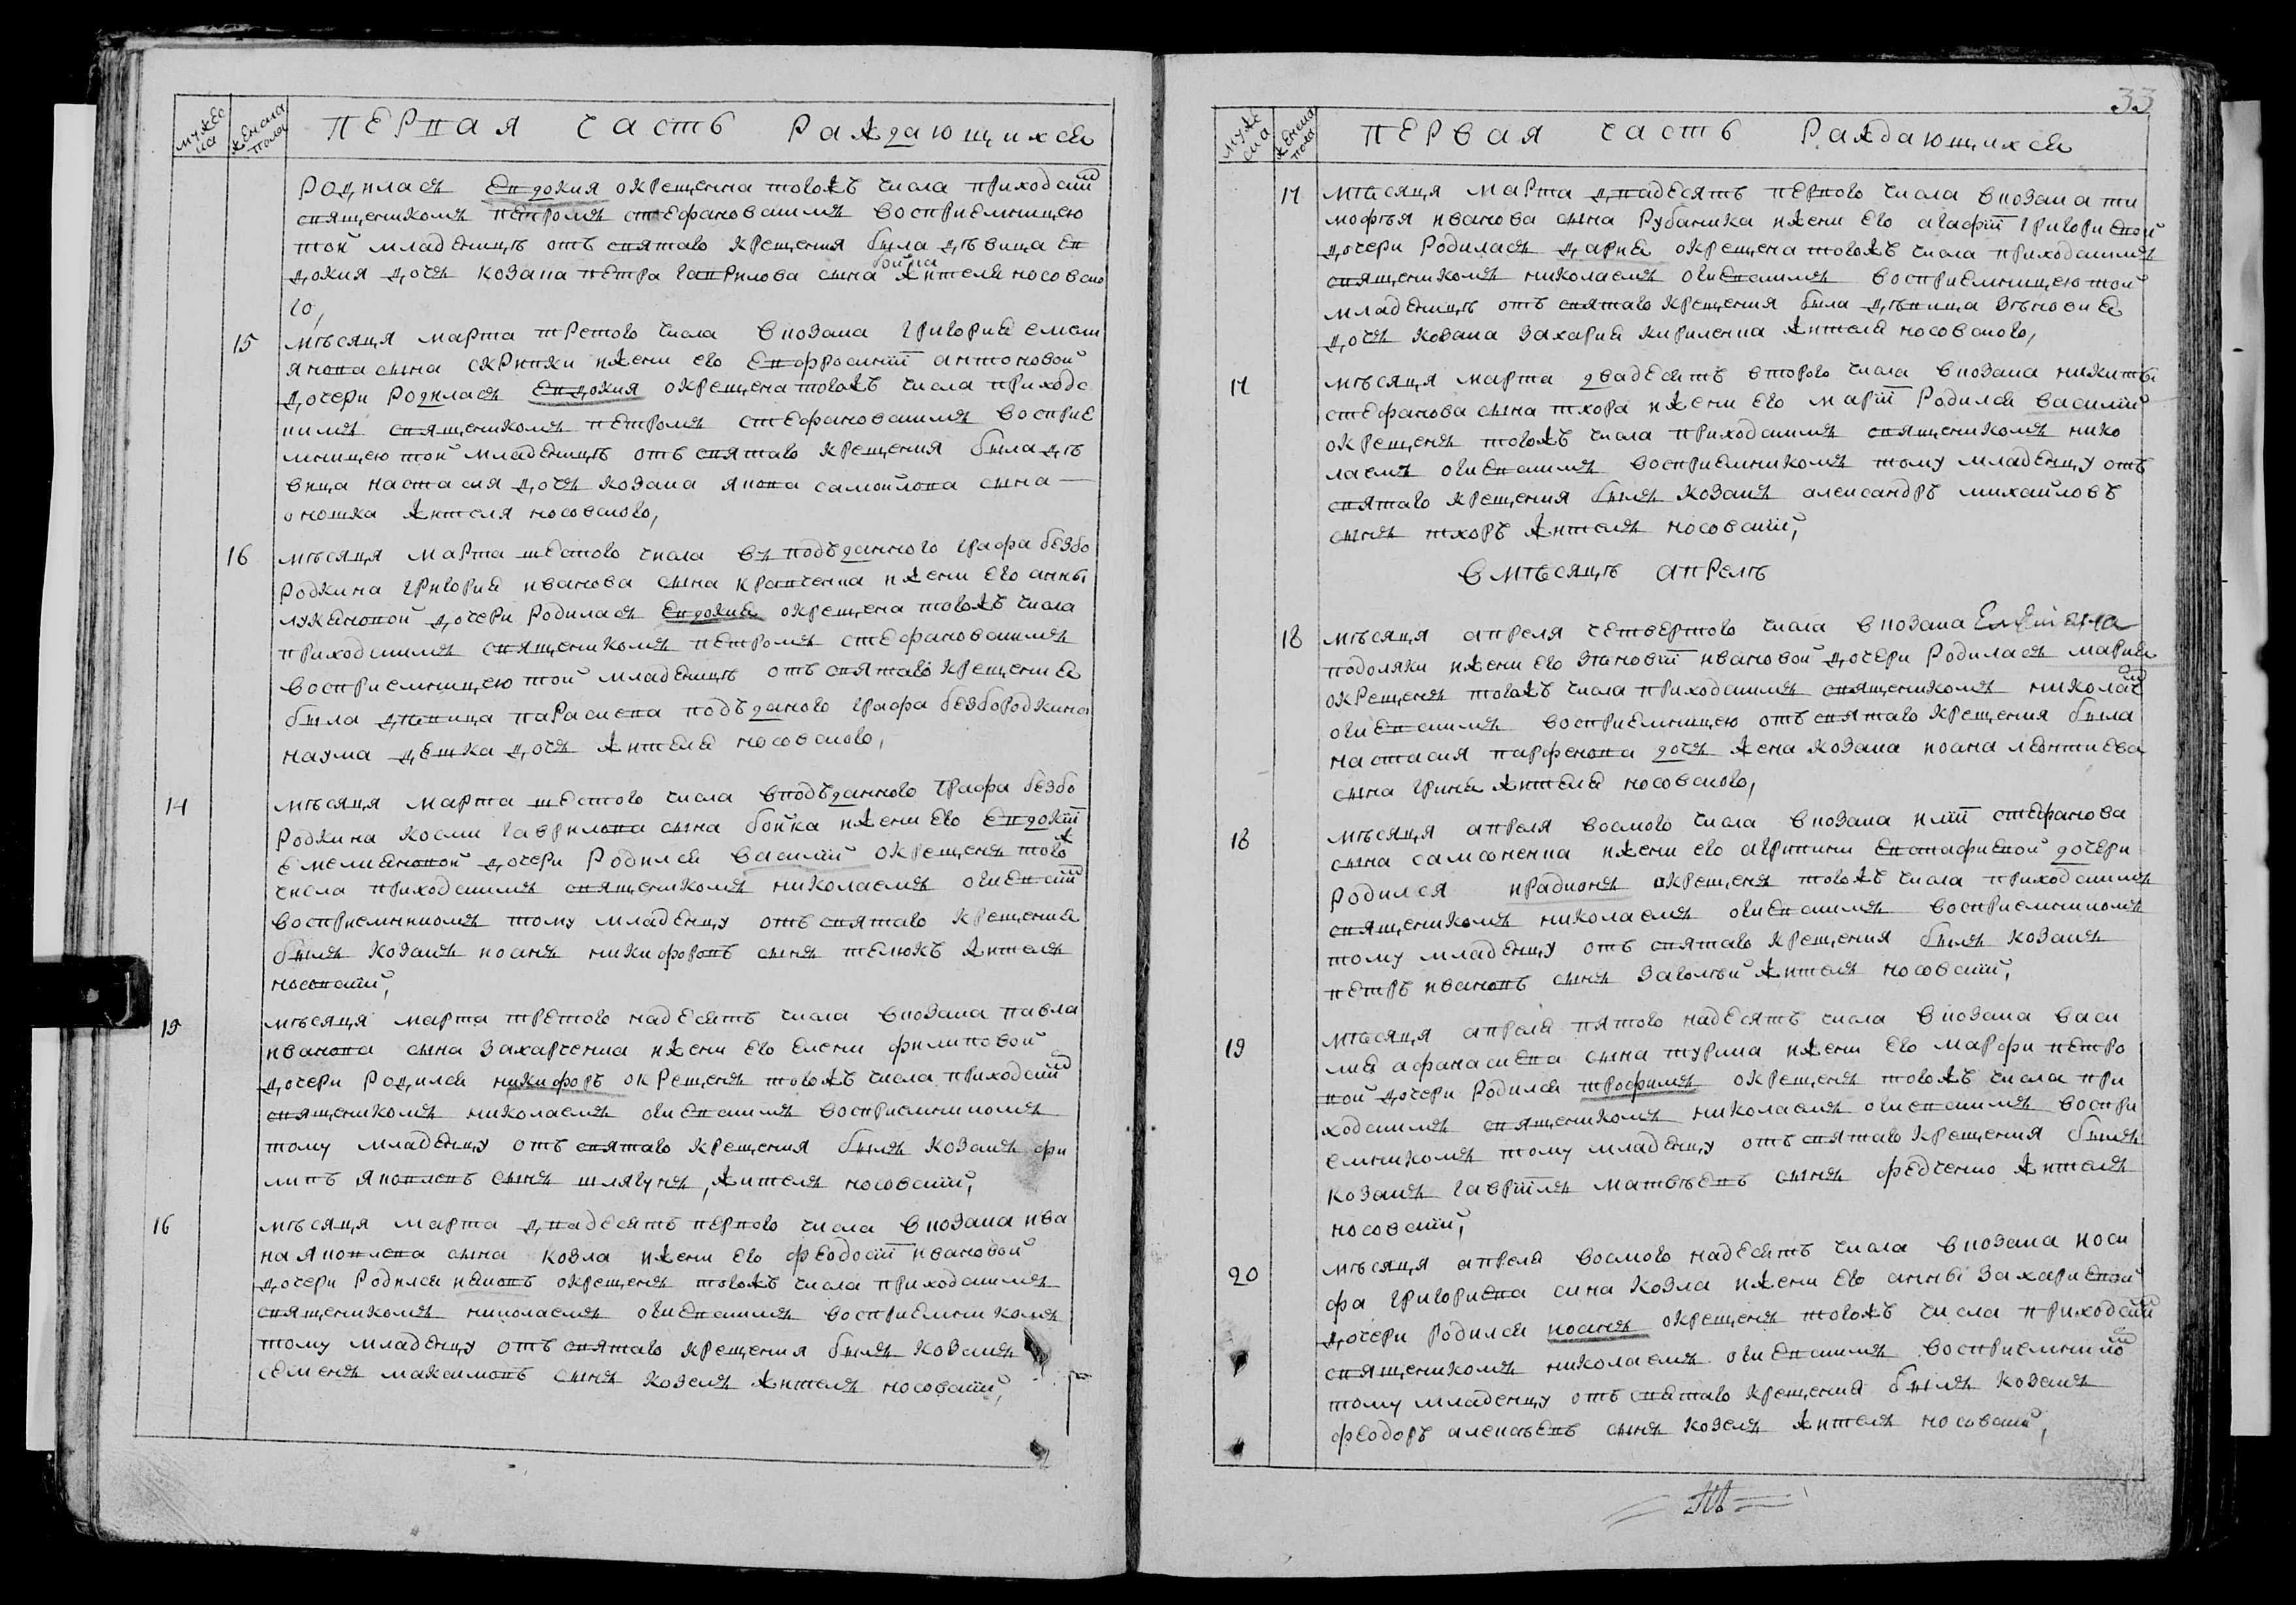 мужеска
женска пола
ПЕРВАЯ ЧАСТЬ Раждающихся
Родилася Евдокия окрещенна тогожъ числа приходским
священикомъ петромъ стефановскимъ восприемницею
той младеницѣ отъ святаго крещения была дѣвица Ев
докия дочъ козака петра гаврилова сына бойка жителя носовско
го,
15 мѣсяця марта третого числа в козака григория емели
янова сына скрипки и жени его Евфросинїи антоновой
дочери Родилася Евдокия окрещена тогожъ числа приходс
кимъ священикомъ петромъ стефановскимъ восприе
мницею той младеницѣ отъ святаго крещения была дѣ
вица настасия дочъ козака якова самойлова сына
оношка жителя носовского,
16 мѣсяця марта шестого числа въ подъданного графа безбо
родкина григория иванова сына кравченка и жени его анны
лукяновой дочери родилася Евдокия окрещена тогожъ числа
приходскимъ священикомъ петромъ стефановскимъ
восприемницею той младеницѣ отъ святаго крещения
была дѣвица параскева подъданого графа безбородкина
наума дешка дочъ жителя носовского,
14 мѣсяця марта шестого числа в подъданного графа безбо
родкина косми гаврилова сына бойка и жени его Евдокїи
емелияновой дочери Родился василий окрещенъ тогож
числа приходскимъ священикомъ николаемъ огиевский
восприемникомъ тому младенцу отъ святаго крещения
былъ козакъ иоанъ никифоровъ сынъ телюкъ житель
носовский,
15 мѣсяця марта третого надесятъ числа в козака павла
иванова сына захарченка и жени его елени филиповой
дочери родился никифоръ окрещенъ тогожъ числа приходским
священикомъ николаемъ огиевскимъ восприемникомъ
тому младенцу отъ святаго крещения былъ козакъ фи
липъ яковлевъ сынъ шлягунъ, житель носовский,
16 мѣсяця марта двадесять первого числа в козака ива
на яковлева сына козла и жени его феодосїи ивановой
дочери родился ияковъ окрещенъ тогожъ числа приходскимъ
священикомъ николаемъ огиевскимъ восприемникомъ
тому младенцу отъ святаго крещения былъ козакъ
семенъ максимовъ сынъ козелъ житель носовский,
33
мужеска
женска пола
ПЕРВАЯ ЧАСТЬ Раждающихся
17 мѣсяця марта двадесять первого числа в козака ти
мофѣя иванова сына рубаника и жени его агафїи григориевой
дочери родилася дария окрещена тогожъ числа приходскимъ
священикомъ николаемъ огиевскимъ восприемницею той
младеницѣ отъ святаго крещения была дѣвица зѣновия
дочъ козака захария кириленка жителя носовского,
17 мѣсяця марта двадесятъ второго числа в козака никиты
стефанова сына тхора и жени его марїи родился василий
окрещенъ тогожъ числа приходскимъ священикомъ нико
лаемъ огиевскимъ восприемникомъ тому младенцу отъ
святаго крещения былъ козакъ александръ михайловъ
сынъ тхоръ житель носовский,
в мѣсяцѣ апрелѣ
18 мѣсяця апреля четвертого числа в козака
подоляки и жени его зѣновїи ивановой дочери родилася мария
окрещенъ тогожъ числа приходскимъ священикомъ николаем
огиевскимъ восприемницею отъ святаго крещения была
настасия парфенова дочъ жена козака иоана леонтиева
сына гриня жителя носовского,
18 мѣсяця апреля восмого числа в козака илїи стефанова
сына самсоненка и жени его агрипини евстафиевой дочери
родился ирадионъ окрещенъ тогожъ числа приходскимъ
священикомъ николаемъ огиевскимъ восприемникомъ
тому младенцу отъ святаго крещения былъ козакъ
петръ ивановъ сынъ заволгий житель носовский,
19 мѣсяця апреля пятого надесять числа в козака васи
лия афанасиева сына турика и жени его марфи петро
вой дочери родился трофимъ окрещенъ тогожъ числа при
ходскимъ священикомъ николаемъ огиевскимъ воспри
емникомъ тому младенцу отъ святаго крещения былъ
козакъ гаврїилъ матвѣевъ сынъ федченко житель
носовский,
20 мѣсяця апреля восмого надесять числа в козака иоси
фа григориева сина козла и жени его анны захариевой
дочери родился иоанъ окрещенъ тогожъ числа приходским
священикомъ николаемъ огиевскимъ восприемником
тому младенцу отъ святаго крещения былъ козакъ
феодоръ алексѣевъ сынъ козелъ житель носовский,